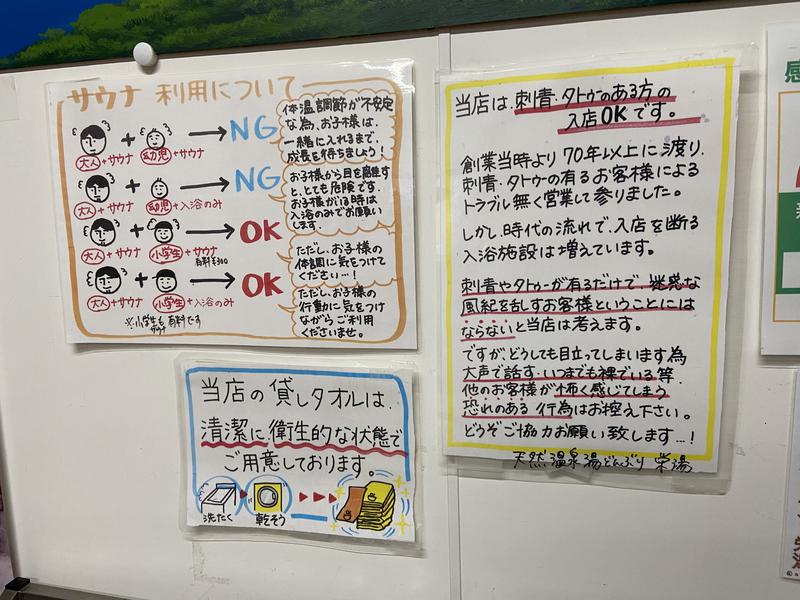 サウナ 利用について
大人+サウナ
幼児+サウナ
NG
体温調節が不安定
な為、お子様は、
一緒に入れるまで、
成長を待ちましょう!
大人+サウナ
幼児+入浴のみ
NG
お子様から目を離す
と、とても危険です。
お子様がいる時は
入浴のみでお願い
します。
大人+サウナ
小学生+サウナ
有料¥300
OK
ただし、お子様の
体調に気をつけて
ください…!
大人+サウナ
小学生+入浴のみ
OK
ただし、お子様の
行動に気をつけ
ながらご利用
くださいませ。
※小学生も
サウナ 有料です
当店の貸しタオルは、
清潔に衛生的な状態で
ご用意しております。
洗たく
乾そう
当店は、刺青・タトゥのある方の
入店OKです。
創業当時より70年以上に渡り、
刺青・タトゥの有るお客様による
トラブル無く営業して参りました。
しかし、時代の流れで、入店を断る
入浴施設は増えています。
刺青やタトゥーが有るだけで、迷惑な
風紀を乱すお客様ということには
ならないと当店は考えます。
ですが、どうしても目立ってしまいます為
大声で話す、いつまでも裸でいる等、
他のお客様が怖く感じてしまう
恐れのある 行為はお控え下さい。
どうぞご協力お願い致します…!
天然温泉湯どんぶり 栄湯
感